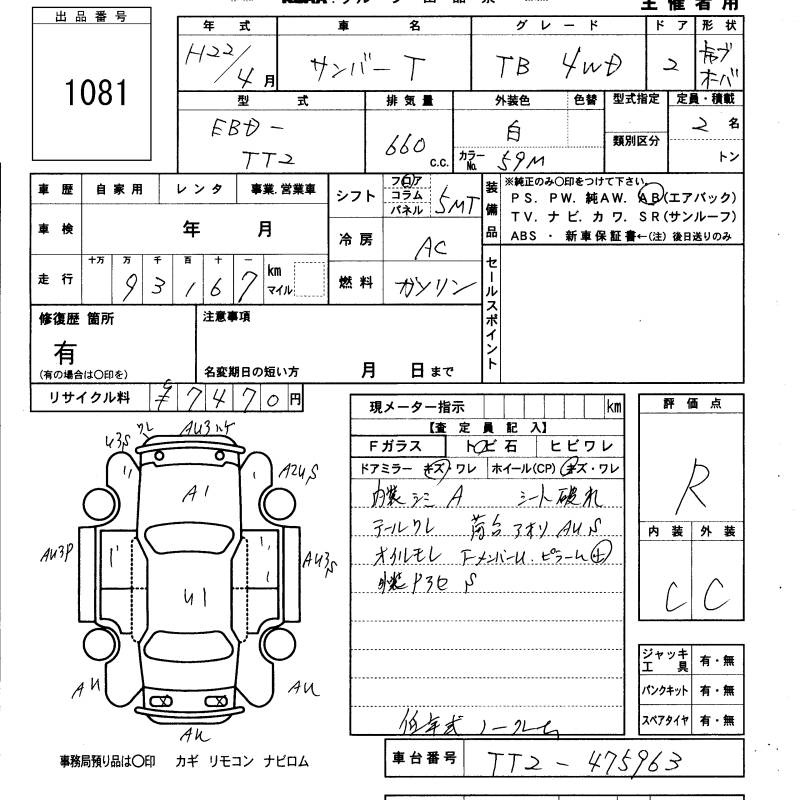 主催者用
出品番号
1081
年式 車名 グレード ドア 形状
H22/4月 サンバーT TB 4WD 2 キャブオーバ
型式 排気量 外装色 色替 型式指定 定員・積載
EBD-TT2 660c.c. 白 カラーNo. 59M 類別区分 2名 トン
車歴 自家用 レンタ 事業.営業車
シフト フロア コラム パネル 5MT
装備品 ※純正のみ〇印をつけて下さい。
PS. PW. 純AW. AB(エアバック)
TV. ナビ. カワ. SR(サンルーフ)
ABS ・ 新車保証書←(注) 後日送りのみ
車検 年 月
冷房 AC
走行 十万 万 千 百 十 一
93167 km マイル
燃料 ガソリン
セールスポイント
修復歴 箇所
有
(有の場合は〇印を)
注意事項
名変期日の短い方 月 日まで
リサイクル料 ¥7470円
現メーター指示 km
【査定員記入】
Fガラス トビ石 ヒビワレ
ドアミラー キズ・ワレ ホイール(CP) キズ・ワレ
内装シミ A シート破れ
テールワレ 荷台アオリ AUS
オイルモレ
評価点
R
内装 外装
C C
ジャッキ工具 有・無
パンクキット 有・無
スペアタイヤ 有・無
U3S ワレ AU3
A2US
A1
AU3P
AU3S
U1
AU
AU
AU
低年式 ノークレ
事務局預り品は〇印 カギ リモコン ナビロム
車台番号 TT2-475963